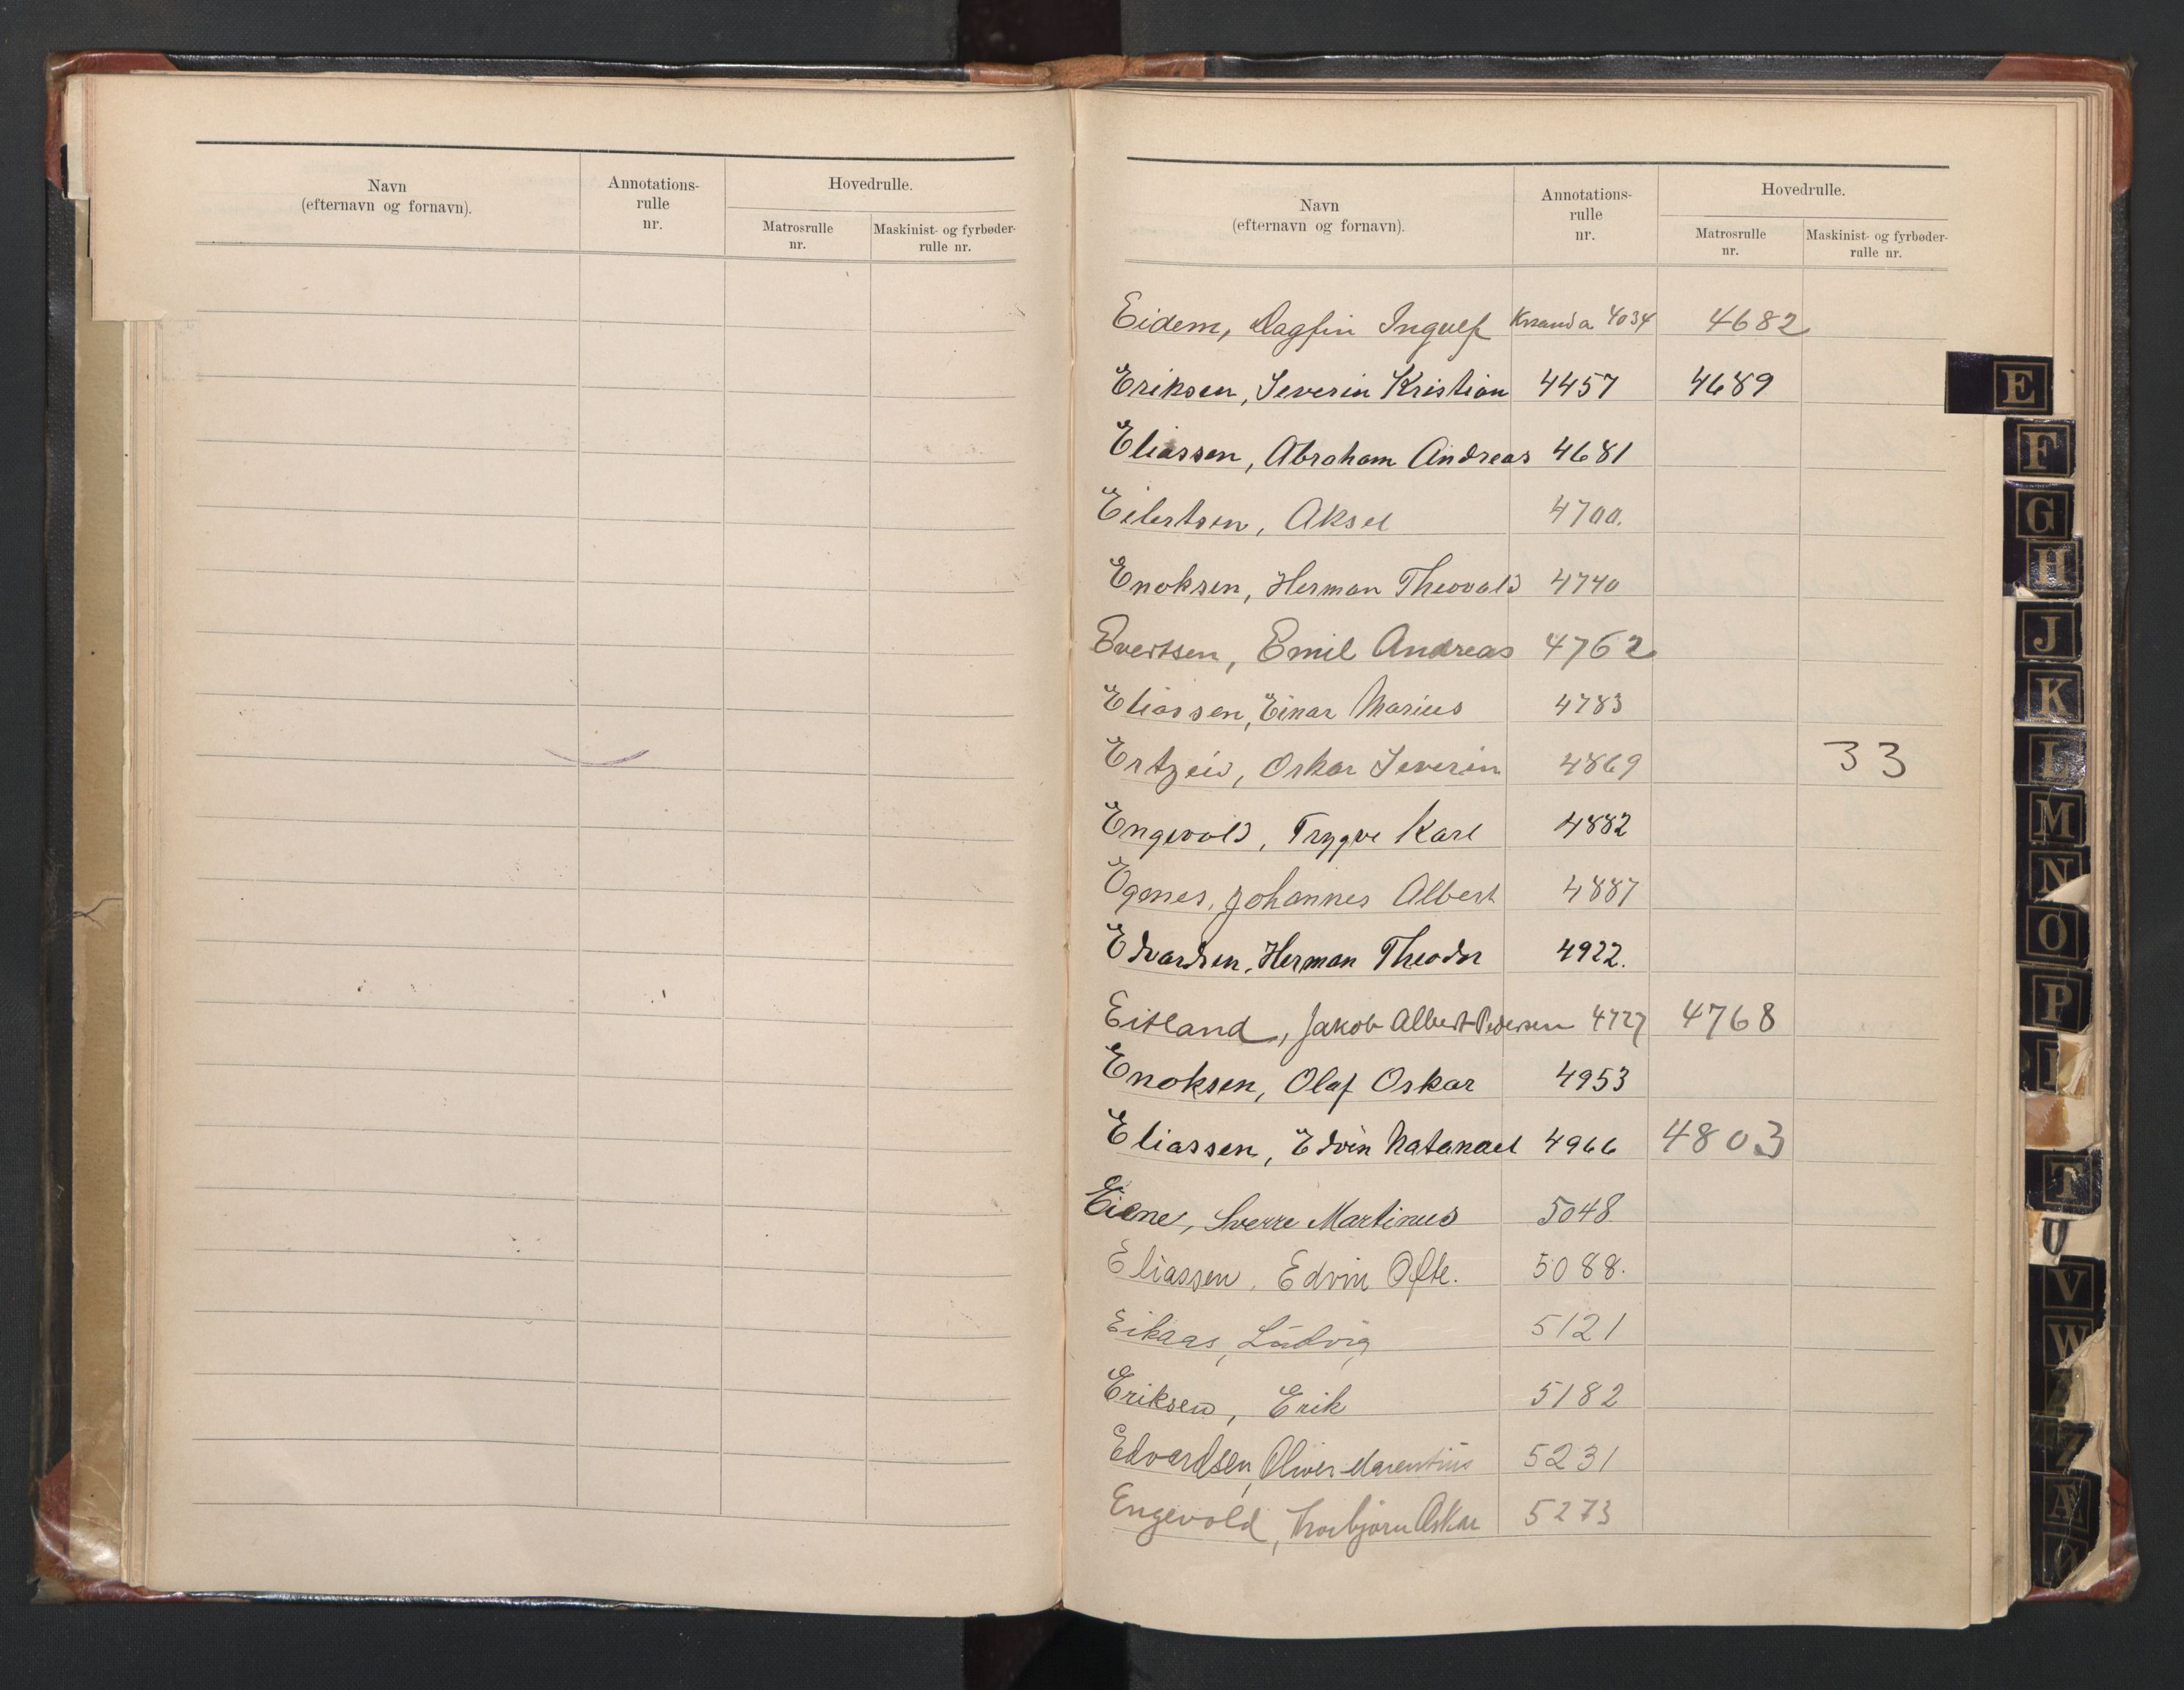 Navn
(efternavn og fornavn).
Annotations-
rulle
nr.
Hovedrulle.
Matrosrulle
nr.
Maskinist- og fyrbøder-
rulle nr.
Navn
(efternavn og fornavn).
Annotations-
rulle
nr.
Hovedrulle.
Matrosrulle
nr.
Maskinist- og fyrbøder-
rulle nr.
Eidem, Dagfin Ingulf 4034 4682
Eriksen, Severin Kristian 4457 4689
Eliassen, Abraham Andreas 4681
Eilertsen, Aksel 4700.
Enoksen, Herman Theovald 4740
Evertsen, Emil Andreas 4762
Eliassen, Einar Marius 4783
Ertzeid, Oskar Severin 4869 33
Engevold, Trygve Karl 4882
Egenes, Johannes Albert 4887
Edvardsen, Herman Theodor 4922.
Eitland, Jakob Albert Pedersen 4727 4768
Enoksen, Olaf Oskar 4953
Eliassen, Edvin Natanael 4966 4803
Eiene, Sverre Martinus 5048
Eliassen, Edvin Ofte. 5088.
Eikaas, Ludvig 5121
Eriksen, Erik 5182
Edvardsen, Oliver Marentius 5231
Engevold, Thorbjørn Oskar 5273
E
F
G
H
J
K
L
M
N
O
P
T
U
V
W
Z
Æ
Ø